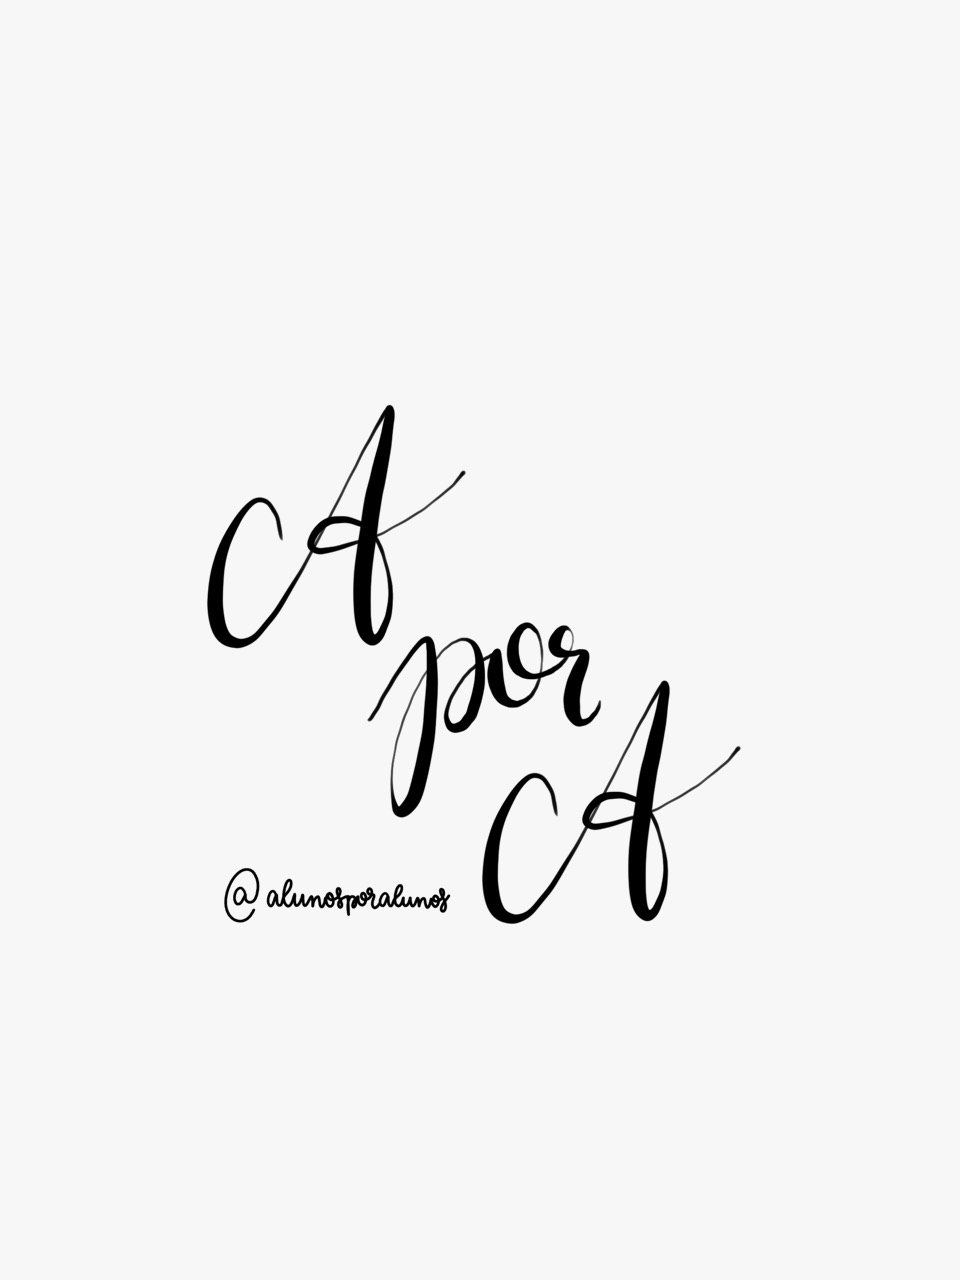 A
por
A
@alunosporalunos